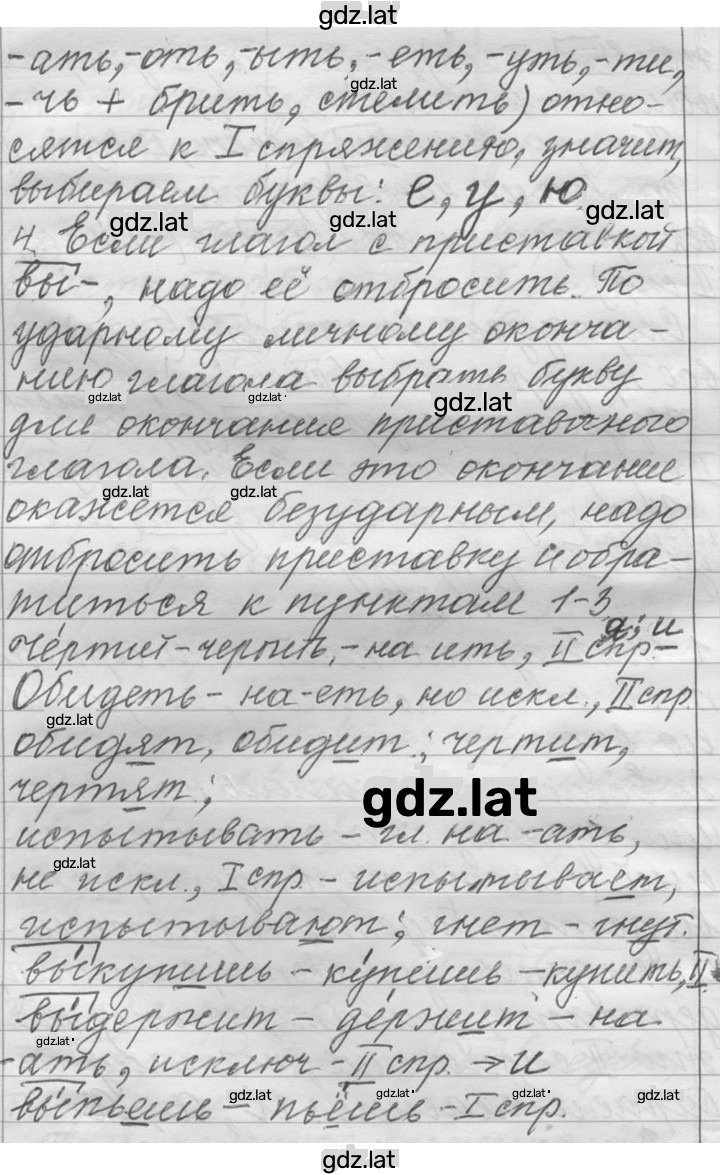 gdz.lat
-ать, -оть, -ыть, -еть, -уть, -ти,
gdz.lat
-чь + брить, стелить) отно-
сятся к I спряжению, значит,
выбираем буквы: е, у, ю
gdz.lat gdz.lat gdz.lat
4. Если глагол с приставкой
вы-, надо её отбросить. По
ударному личному оконча-
нию глагола выбрать букву
gdz.lat gdz.lat gdz.lat
для окончание приставочного
глагола. Если это окончание
gdz.lat gdz.lat
окажется безударным, надо
отбросить приставку и обра-
титься к пунктам 1-3
я; и
Чертит - чертить, - на ить, II спр. -
Обидеть - на -еть, но искл., II спр.
gdz.lat
обидят, обидит; чертит,
чертят;
gdz.lat
испытывать - гл. на -ать,
gdz.lat
не искл., I спр. - испытывает,
испытывают; гнет - гнут.
выкупишь - купишь - купить, II
выдержит - держит - на
gdz.lat
-ать, исключ - II спр. → и
gdz.lat gdz.lat gdz.lat
выпьешь - пьёшь - I спр.
gdz.lat